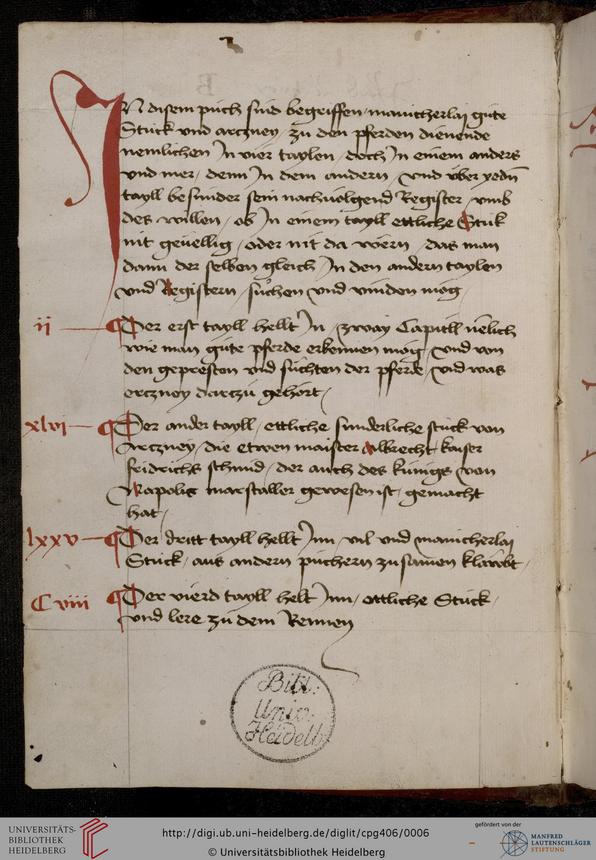 IN disem puch sind begriffen / manicherlaj güte
Stuck vnd arczney / zu den pferden dienende
nemlichen Jn vier taylen / doch Jn einem anders
vnd mer / denn Jn dem andern / vnd über yedn̄
tayll besunder sein nachuolgend Register / vmb
des willen / ob Jn einem tayll ettliche Stuk
nit geuellig / oder nit da wern / das man
dann der selben gleich Jn den andern taylen
vnd Registern / sůchen vnd vinden mög
ii ¶ Der erst tayll hellt Jn / zway Capitll nēlich
wie man güte pferde erkennen mög / vnd von
den gepresten vnd süchten der pferde / vnd was
erczney darczü gehört /
xlvi ¶ Der ander tayll / ettliche sunderliche stuck von
Arczney / die etwen maister Albrecht kaiser
feidrichs schmid / der auch des künigs von
Napolis marstaller gewesen ist / gemacht
hat /
lxxv ¶ Der dritt tayll hellt Jnn / vil vnd manicherlaj
Stuck / aus andern püchern zusamen klaubt /
C viii ¶ Der vierd tayll helt Jnn / ettliche Stuck /
vnd lere zu dem Rennen
Bibl:
Univ:
Heidelb
UNIVERSITÄTS-
BIBLIOTHEK
HEIDELBERG
http://digi.ub.uni-heidelberg.de/diglit/cpg406/0006
© Universitätsbibliothek Heidelberg
gefördert von der
MANFRED
LAUTENSCHLÄGER
STIFTUNG